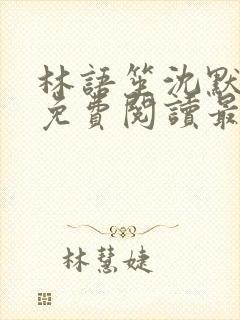 林語笙沈默
免費閱讀最
林慧婕